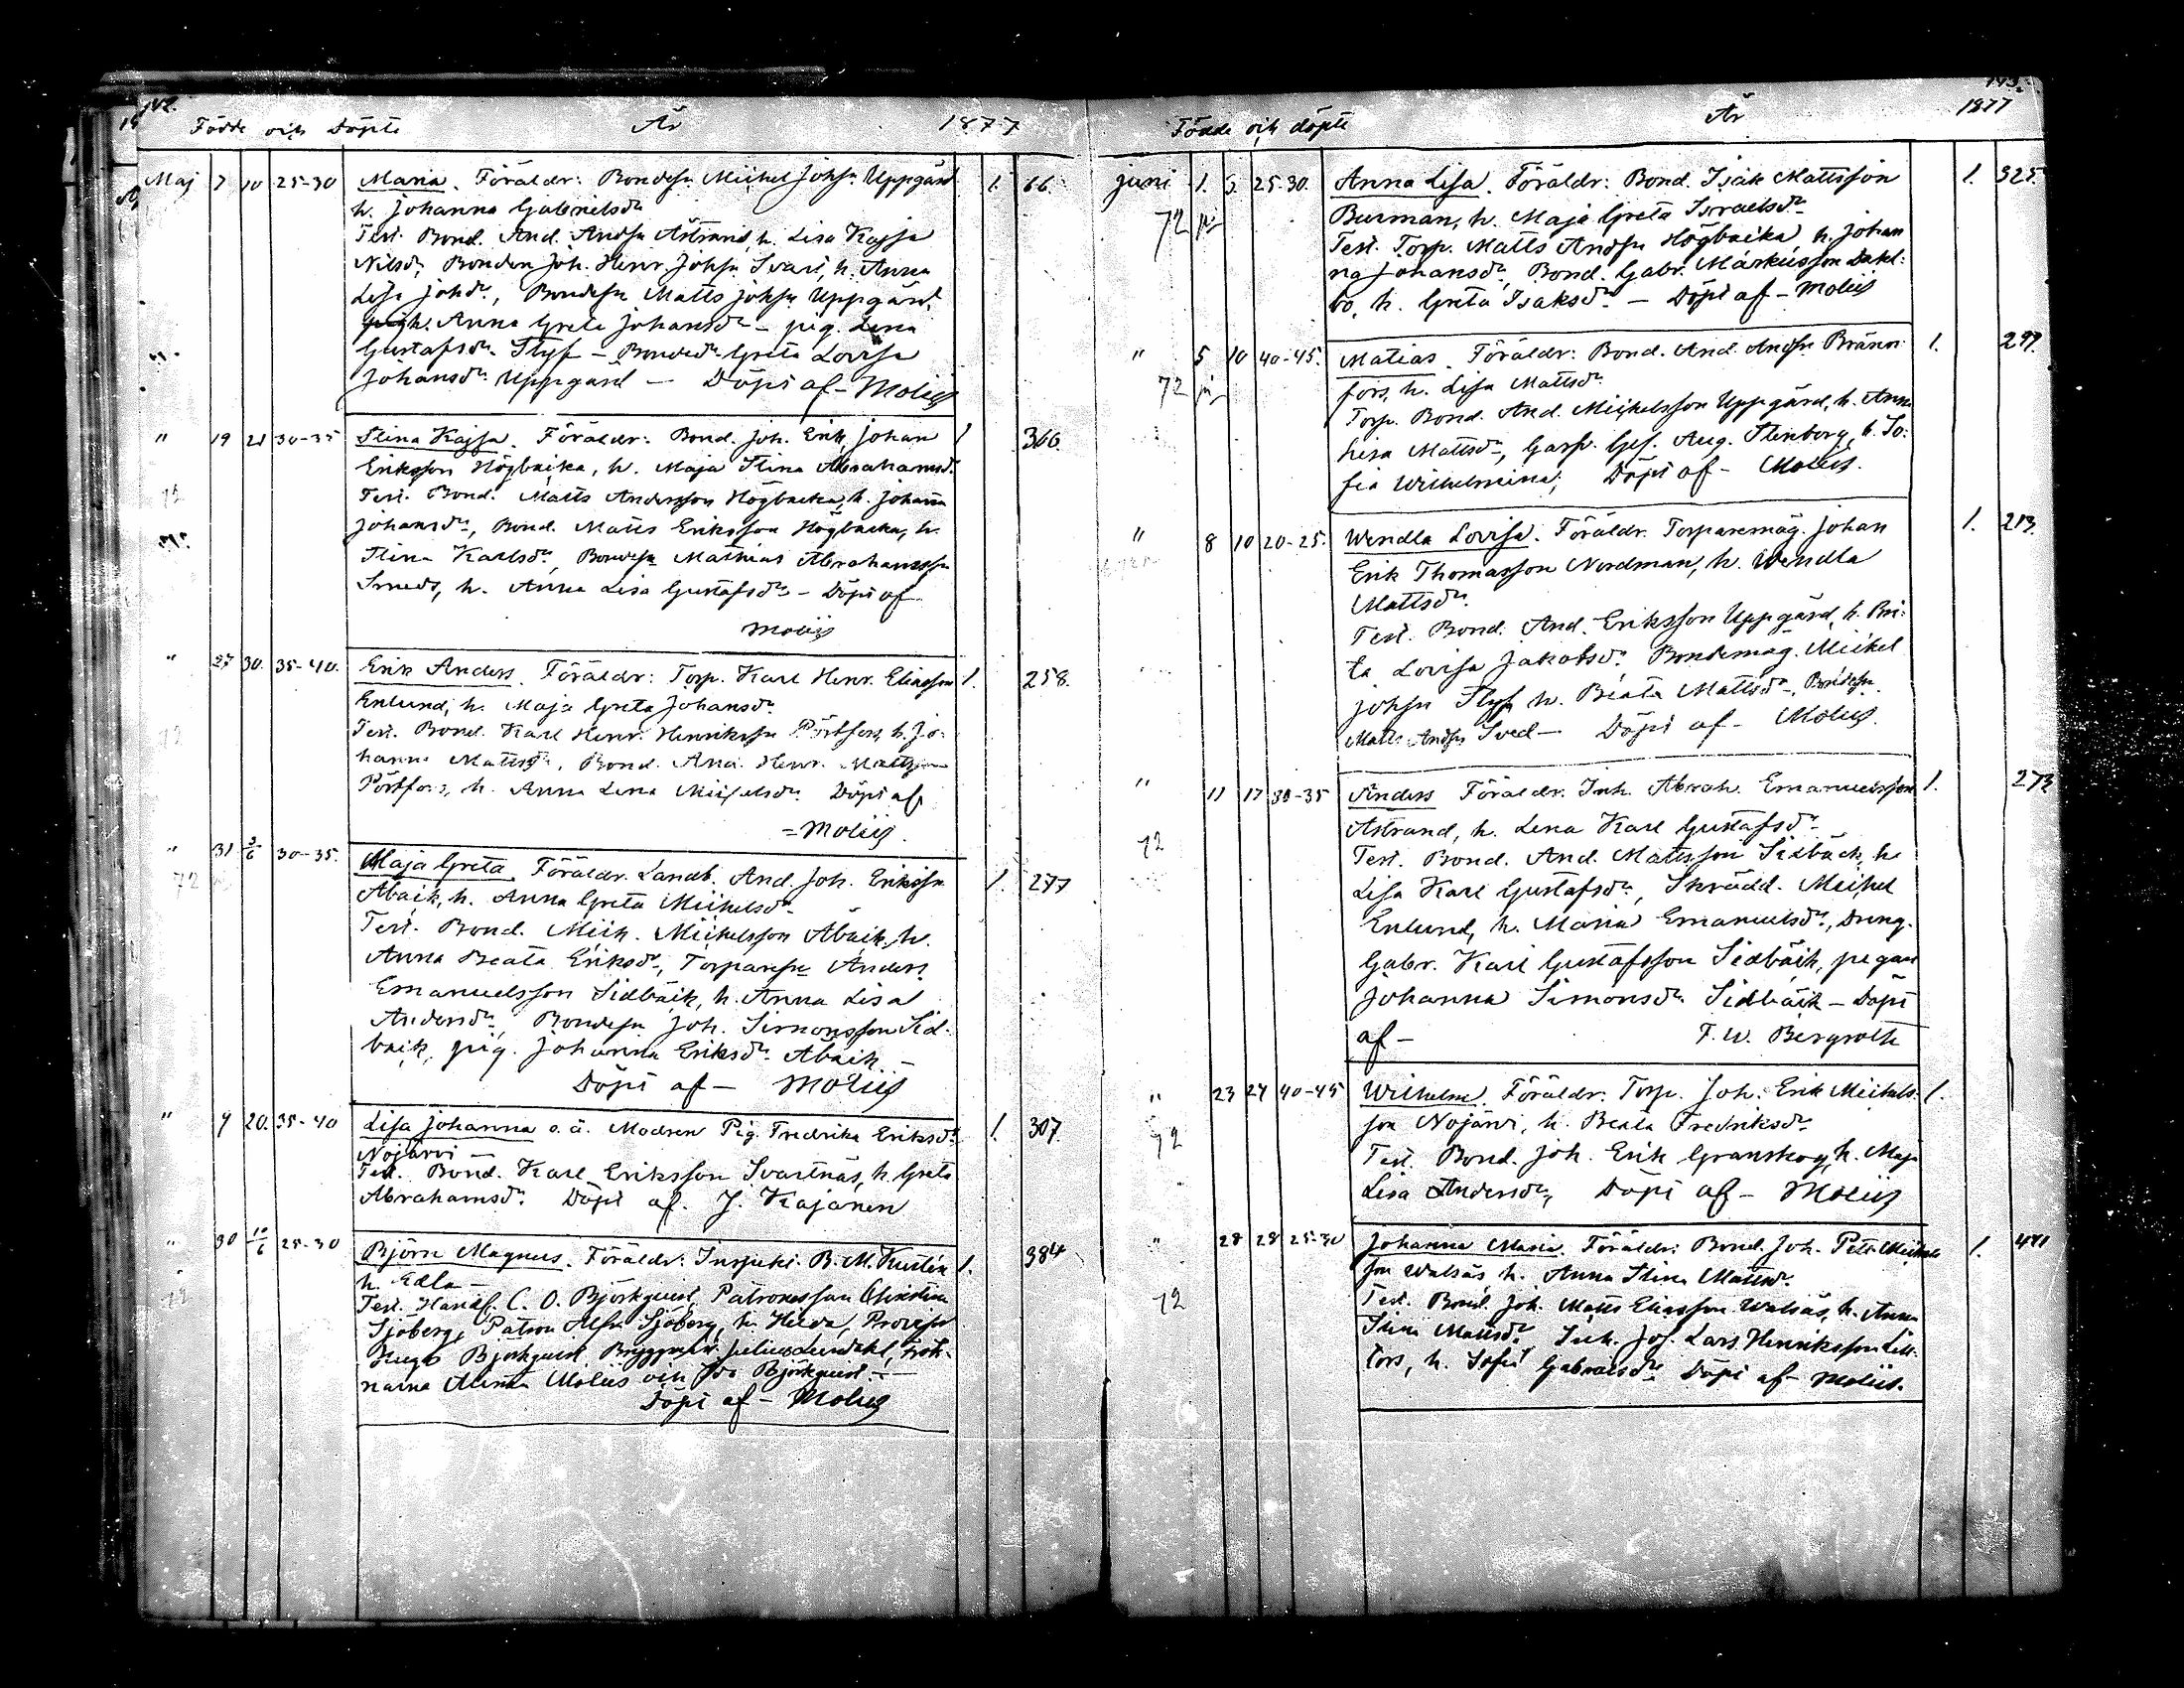 142.
Födde och Döpte År 1877
Maj 7 10 25-30 Maria. Föräldr: Bondesn Mickel Johsn Uppgård 1. 66.
h. Johanna Gabrielsdr
Test. Bond. And. Andsn Åstrand, h. Lisa Kajsa
Nilsdr, Bonden Joh. Henr. Johsn Svart, h. Anna
Lisa Johdr, Bondesn Matts Johsn Uppgård,
h. Anna Greta Johansdr - pig. Lena
Gustafsdr Styf - Bondedr Greta Lovisa
Johansdr Uppgård - Döpt af - Moliis
" 19 21 30-35 Stina Kajsa. Föräldr: Bond. Joh. Erik Johan 1 366.
Eriksson Högbacka, h. Maja Stina Abrahamsdr
Test. Bond. Matts Andersson Högbacka, h. Johanna
Johansdr, Bond. Matts Eriksson Högbacka, h.
Stina Karlsdr, Bondesn Mathias Abrahamssn
Smeds, h. Anna Lisa Gustafsdr - Döpt af
Moliis
" 27 30. 35-40. Erik Anders. Föräldr: Torp. Karl Henr. Eliasson 1. 258.
Enlund, h. Maja Greta Johansdr
Test. Bond. Karl Henr. Henrikssn Pörtfors, h. Jo-
hanna Mattsdr, Bond. And. Henr. Mattsson
Pörtfors, h. Anna Lena Mickelsdr Döpt af
= Moliis.
" 31 3/6 30-35. Maja Greta. Föräldr. Landb. And. Joh. Erikssn 1. 277
72 Åbäck, h. Anna Greta Mickelsdr
Test. Bond. Mick. Mickelsson Åbäck, h.
Anna Beata Eriksdr, Torparesn Anders
Emanuelsson Sidbäck, h. Anna Lisa
Andersdr, Bondesn Joh. Simonsson Sid-
bäck, pig. Johanna Eriksdr Åbäck -
Döpt af - Moliis
" 9 20. 35-40 Lisa Johanna o.ä. Modren Pig. Fredrika Eriksdr 1. 307.
Nojärvi -
Test. Bond. Karl Eriksson Svartnäs, h. Greta
Abrahamsdr Döpt af. J. Kajanen
" 30 10/6 25-30 Björn Magnus. Föräldr: Inspekt. B. M. 1. 384
h. Edla -
Test. Handl. C. O. Björkquist, Patronessan Christina
Sjöberg, Patron Sjöberg, h. Hilda, Provisor
Hugo Björkquist, Julius Lundahl, frök-
narna Moliis och Ida Björkquist. -
Döpt af - Moliis
143.
Födde och döpte År 1877
Juni 1. 3. 25-30. Anna Lisa. Föräldr: Bond. Isak Mattsson 1. 325.
72 Burman, h. Maja Greta Israelsdr
Test. Torp. Matts Andsn Högbacka, h. Johan
na Johansdr, Bond. Gabr. Markusson Dahl-
bo, h. Greta Isaksdr - Döpt af - Moliis
" 5 10 40-45. Matias. Föräldr: Bond. And. Andsn Bränn- 1. 299.
72 fors, h. Lisa Mattsdr
Torp. Bond. And. Mickelsson Uppgård, h. Anna
Lisa Mattsdr, Garf. Ges. Aug. Stenborg, h. So-
fia Wilhelmina, Döpt af - Moliis.
" 8 10 20-25. Wendla Lovisa. Föräldr. Torparemåg. Johan 1. 213.
Erik Thomasson Nordman, h. Wendla
Mattsdr
Test. Bond. And. Eriksson Uppgård, h. Bri-
ta Lovisa Jakobsdr Bondemåg. Mickel
Johsn Styf h. Beata Mattsdr, Bondesn
Matts Andsn Sved - Döpt af - Moliis.
" 11 17 30-35 Anders Föräldr. Inh. Abrah. Emanuelsson 1. 273
72 Åstrand, h. Lena Karl Gustafsdr
Test. Bond. And. Mattsson Sidbäck, h.
Lisa Karl Gustafsdr, Skrädd. Mickel
Enlund, h. Maria Emanuelsdr, Dräng.
Gabr. Karl Gustafsson Sidbäck, pigan
Johanna Simonsdr Sidbäck - Döpt
af - F. W. Bergroth
" 23 24 40-45 Wilhelm. Föräldr. Torp. Joh. Erik Mickels- 1.
72 son Nojärvi, h. Beata Fredriksdr
Test. Bond. Joh. Erik Granskog, h. Maja
Lisa Andersdr, Döpt af - Moliis
" 28 28 25-30 Johanna Maria. Föräldr: Bond. Joh. Pett. Mickels 1. 471
son Walsäs h. Anna Stina Mattsdr
72 Test. Bond. Joh. Matts Eliasson Walsäs, h. Anna
Stina Mattsdr Inh. Jos. Lars Henriksson Lill-
tors, h. Sofia Gabrielsdr Döpt af - Moliis.